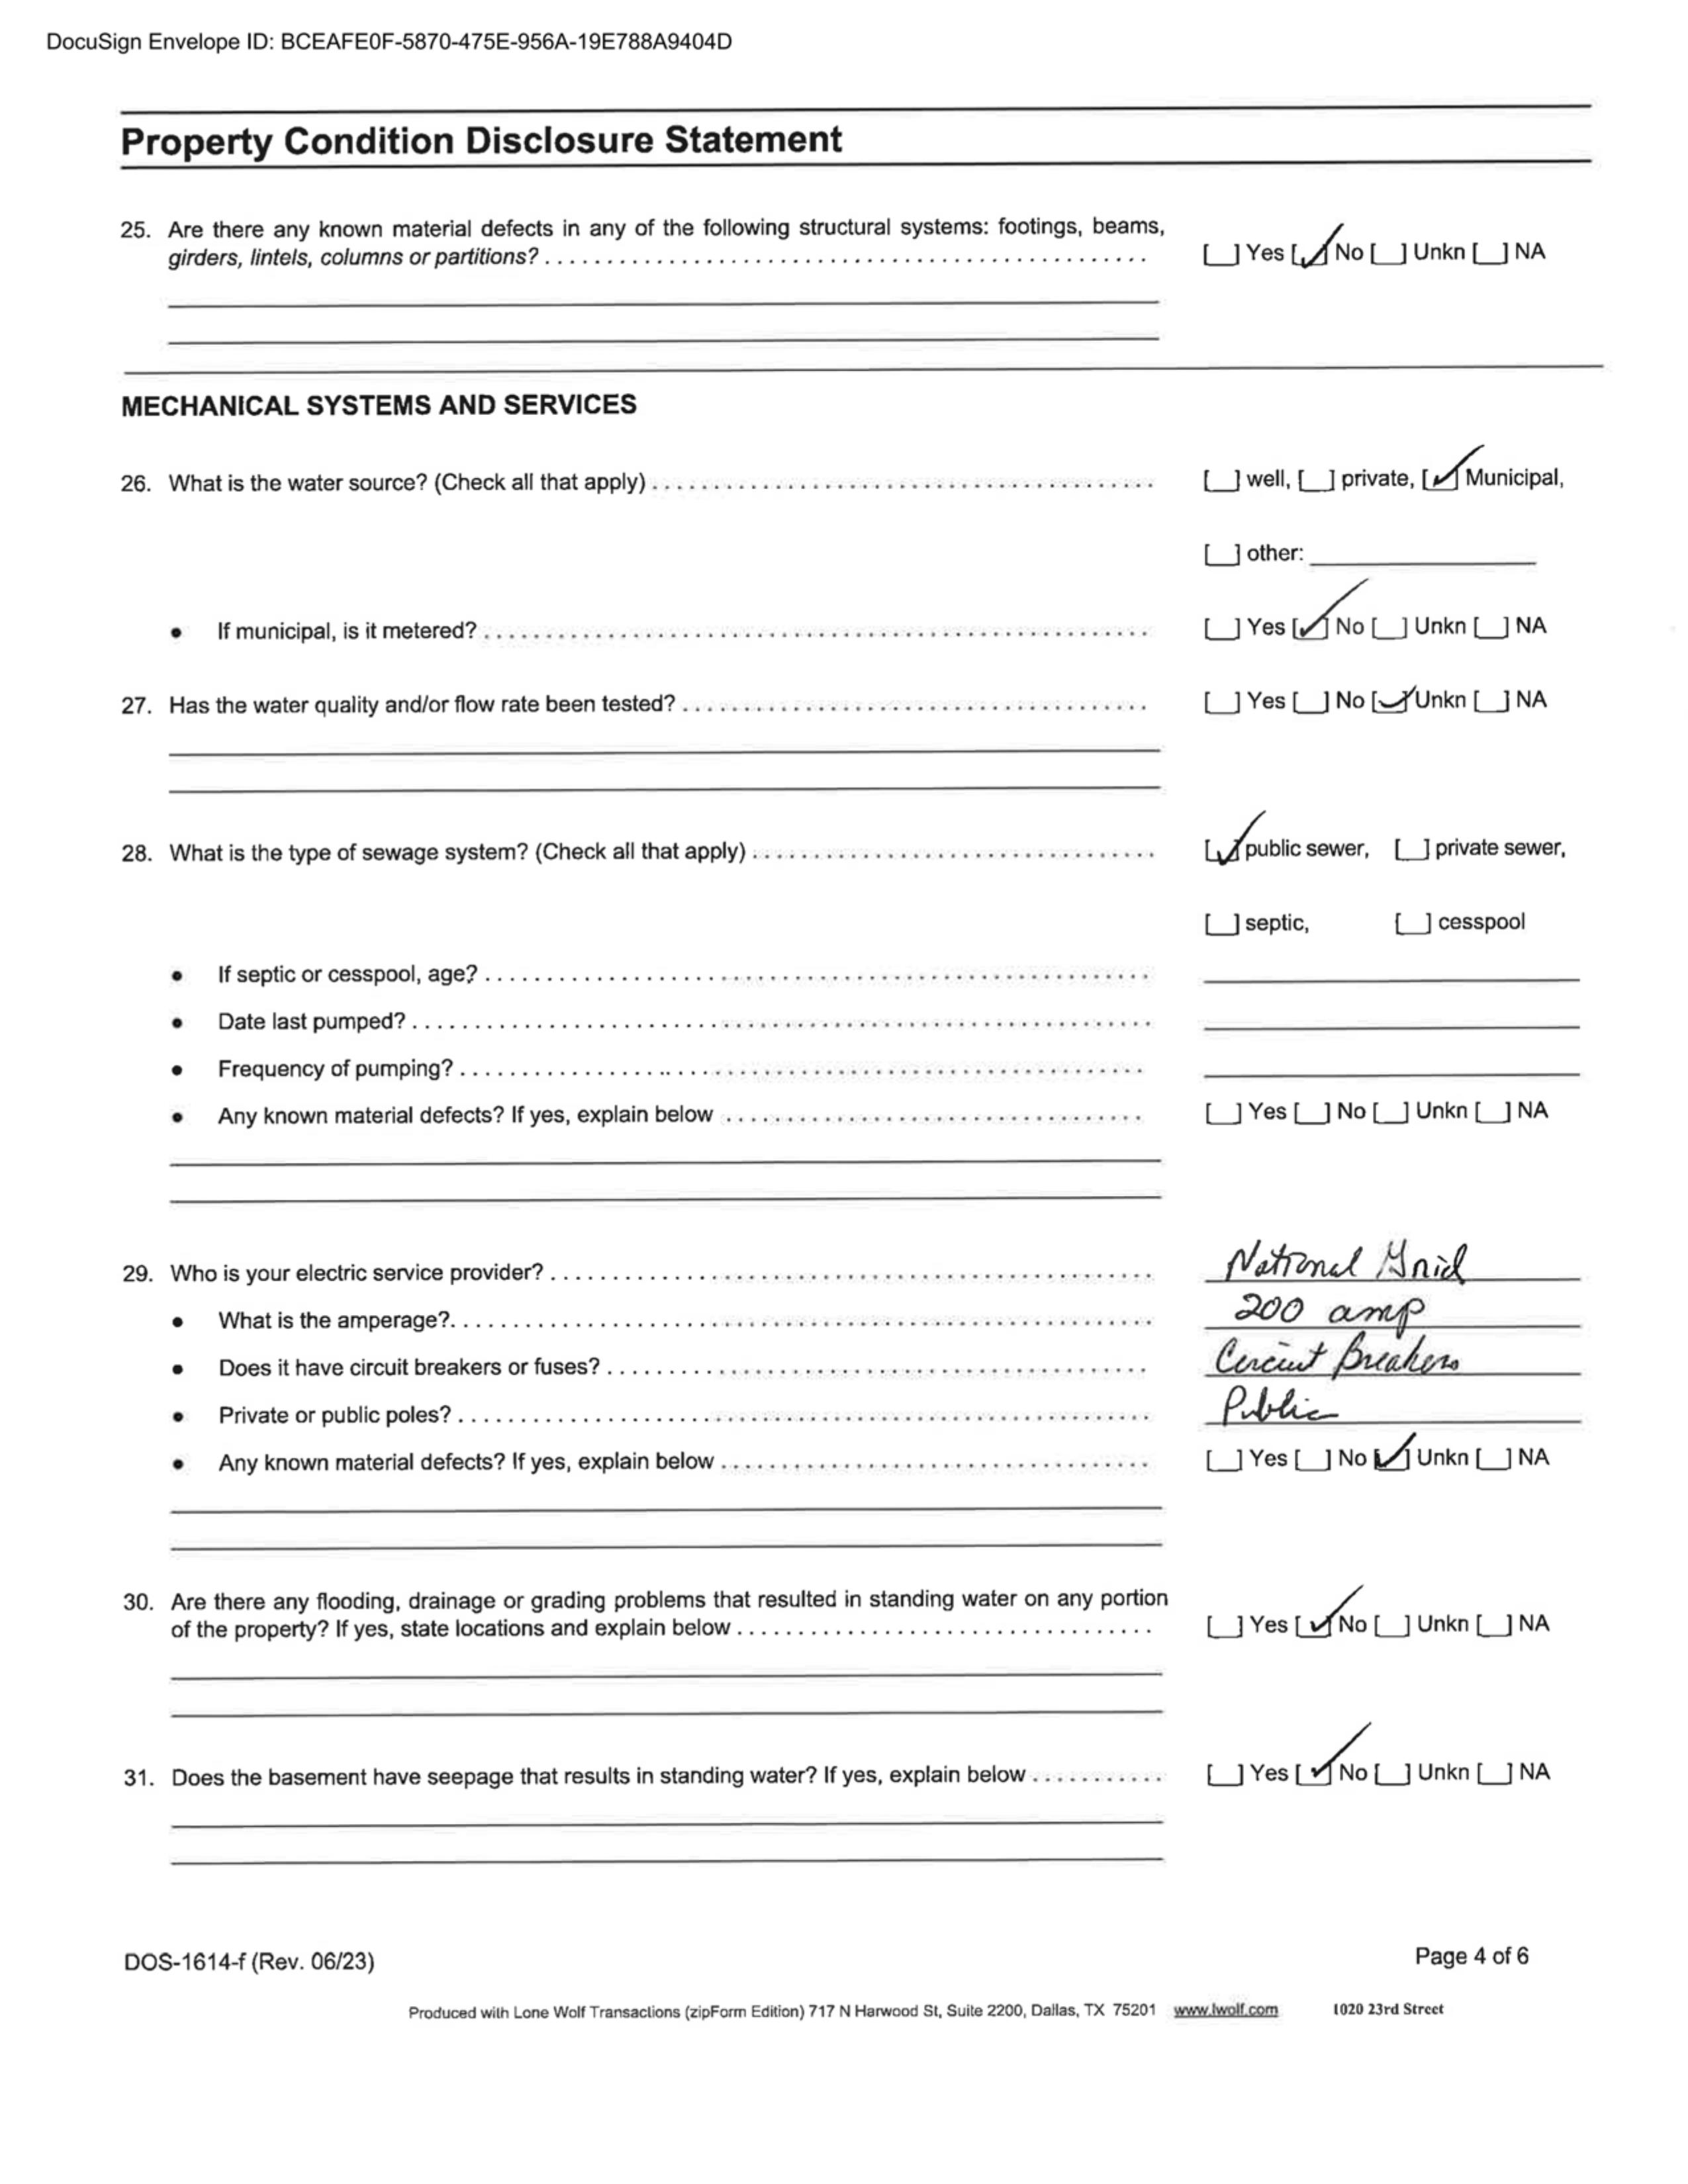 DocuSign Envelope ID: BCEAFE0F-5870-475E-956A-19E788A9404D
Property Condition Disclosure Statement
25. Are there any known material defects in any of the following structural systems: footings, beams,
girders, lintels, columns or partitions? [ ] Yes [✓] No [ ] Unkn [ ] NA
MECHANICAL SYSTEMS AND SERVICES
26. What is the water source? (Check all that apply) [ ] well, [ ] private, [✓] Municipal,
[ ] other:
• If municipal, is it metered? [ ] Yes [✓] No [ ] Unkn [ ] NA
27. Has the water quality and/or flow rate been tested? [ ] Yes [ ] No [✓] Unkn [ ] NA
28. What is the type of sewage system? (Check all that apply) [✓] public sewer, [ ] private sewer,
[ ] septic, [ ] cesspool
• If septic or cesspool, age?
• Date last pumped?
• Frequency of pumping?
• Any known material defects? If yes, explain below [ ] Yes [ ] No [ ] Unkn [ ] NA
29. Who is your electric service provider? National Grid
• What is the amperage? 200 amp
• Does it have circuit breakers or fuses? Circuit Breakers
• Private or public poles? Public
• Any known material defects? If yes, explain below [ ] Yes [ ] No [✓] Unkn [ ] NA
30. Are there any flooding, drainage or grading problems that resulted in standing water on any portion
of the property? If yes, state locations and explain below [ ] Yes [✓] No [ ] Unkn [ ] NA
31. Does the basement have seepage that results in standing water? If yes, explain below [ ] Yes [✓] No [ ] Unkn [ ] NA
DOS-1614-f (Rev. 06/23) Page 4 of 6
Produced with Lone Wolf Transactions (zipForm Edition) 717 N Harwood St, Suite 2200, Dallas, TX 75201 www.lwolf.com 1020 23rd Street